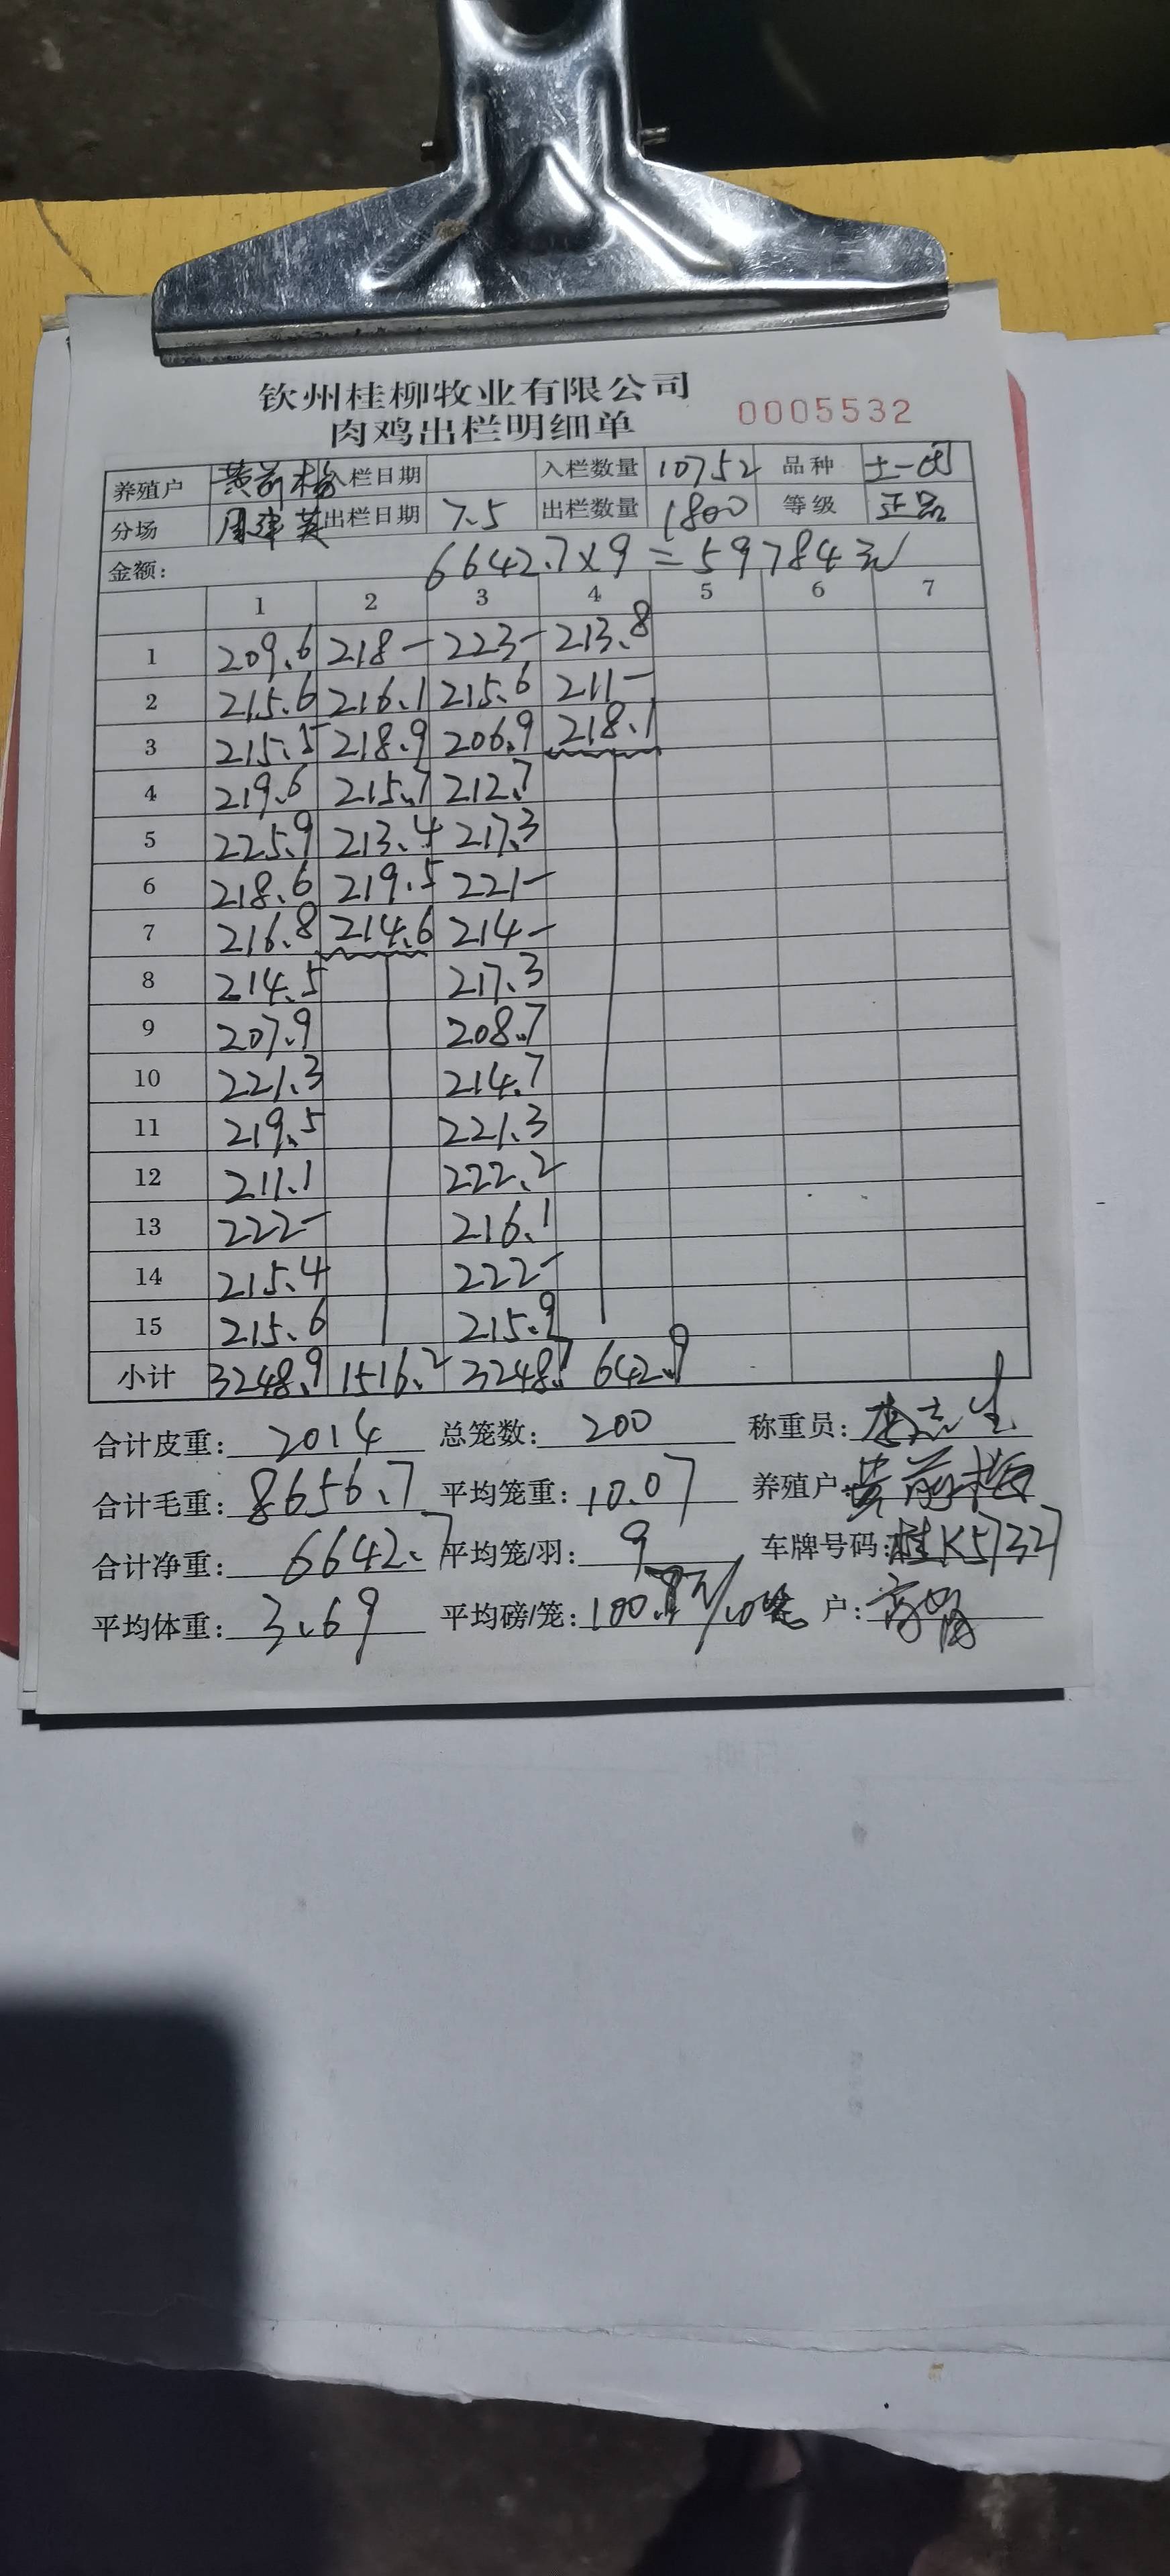 钦州桂柳牧业有限公司
肉鸡出栏明细单 0005532
养殖户 黄前梅 入栏日期 入栏数量 10752 品种 土一
分场 周建英 出栏日期 7.5 出栏数量 1800 等级 正品
金额: 6642.7×9=59784元
1 2 3 4 5 6 7
1 209.6 218- 223- 213.8
2 215.6 216.1 215.6 211-
3 215.5 218.9 206.9 218.1
4 219.6 215.7 212.7
5 225.9 213.4 217.3
6 218.6 219.5 221-
7 216.8 214.6 214-
8 214.5 217.3
9 207.9 208.7
10 221.3 214.7
11 219.5 221.3
12 211.1 222.2
13 222- 216.1
14 215.4 222-
15 215.6 215.9
小计 3248.9 1516.2 3248.7 642.9
合计皮重: 2014 总笼数: 200 称重员:
合计毛重: 8656.7 平均笼重: 10.07 养殖户: 黄前梅
合计净重: 6642.7 平均笼/羽: 9 车牌号码: 桂K57327
平均体重: 3.69 平均磅/笼: 户: